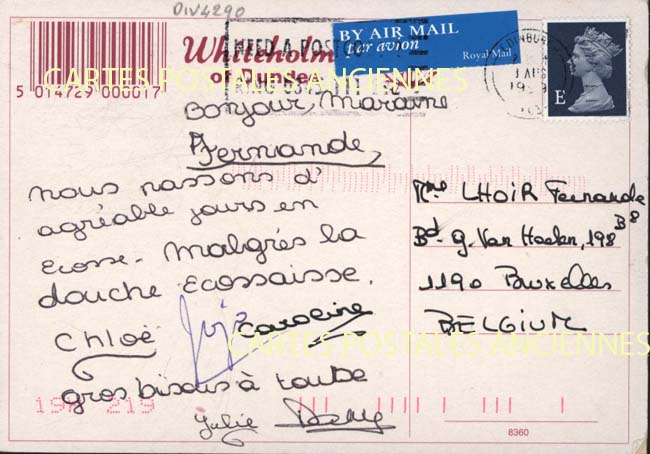 DIV4290
Whiteholme
of Dundee
NEED A POST
5 014729 000017
BY AIR MAIL
par avion
Royal Mail
EDINBURGH
E
CARTES POSTALES ANCIENNES
Bonjour, Maraine
Fernande,
nous passons d'
agréable jours en
Ecosse. Malgrés la
douche écossaisse.
Chloë
Caroline
gros bisous à toute
Julie
Mme LHOIR Fernande
Bd. G. Van Haelen, 198 B8
1190 Bruxelles
BELGIUM
CARTES POSTALES ANCIENNES
19A 219
8360